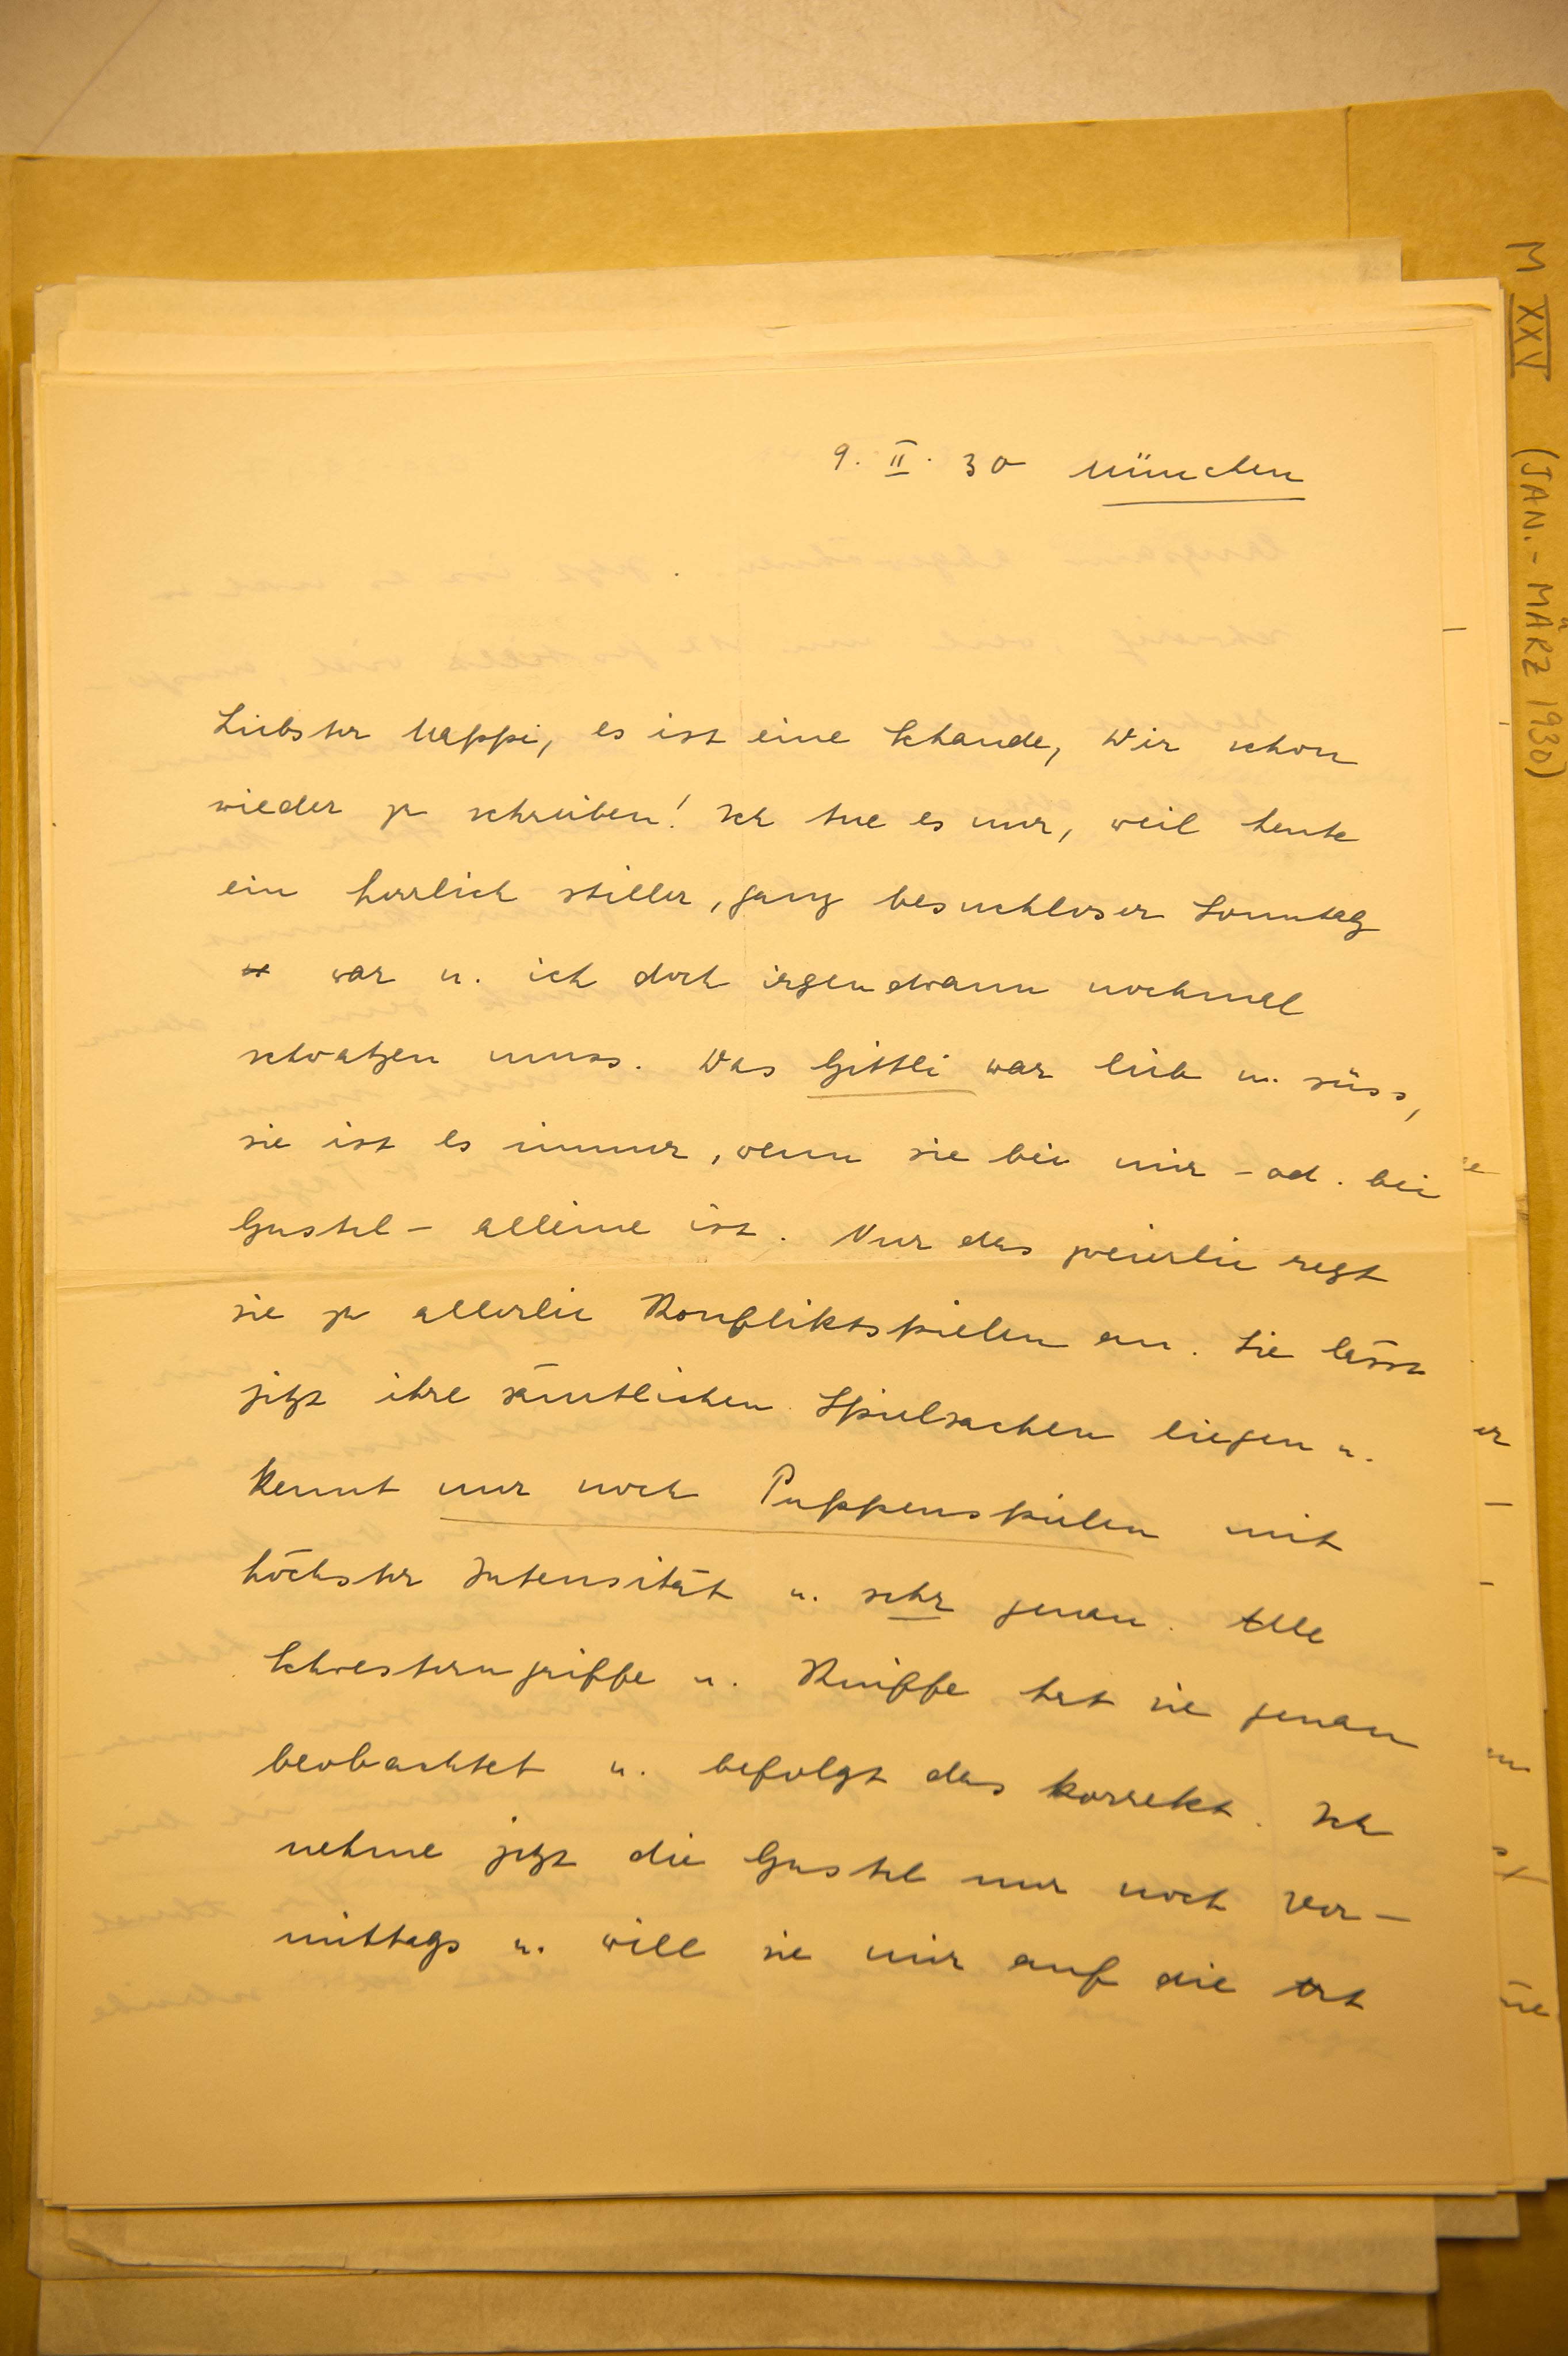 9. II. 30 München
Liebster Mappi, es ist eine Schande, Dir schon
wieder zu schreiben! Ich tue es nur, weil heute
ein herrlich stiller, ganz besuchloser Sonntag
war u. ich doch irgendwann nochmal
schwatzen muss. Das Gittli war lieb u. süss,
sie ist es immer, wenn sie bei mir – od. bei
Gustel – alleine ist. Nur das zweierlei regt
sie zu allerlei Konfliktspielen an. Sie lässt
jetzt ihre sämtlichen Spielsachen liegen u.
kennt nur noch Puppenspielen mit
höchster Intensität u. sehr genau. Alle
Schwesterngriffe u. Kniffe hat sie genau
beobachtet u. befolgt das korrekt. Ich
nehme jetzt die Gustel nur noch vor-
mittags u. will sie mir auf die Art
M XXV (JAN. - MÄRZ 1930)